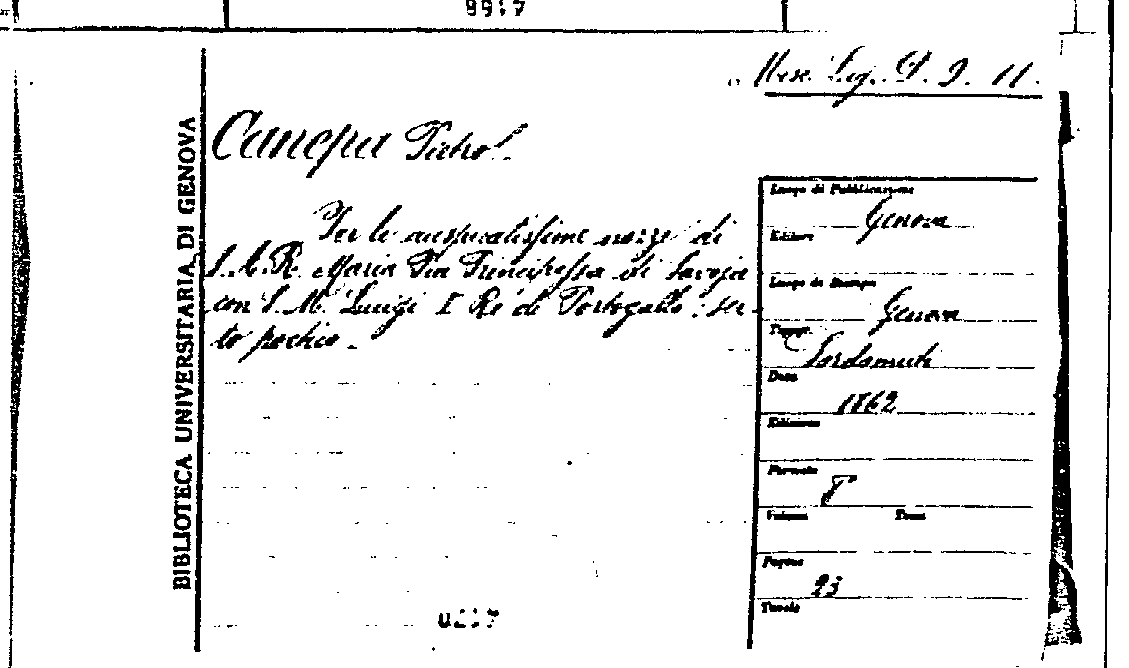 Misc. Lig. D. 9. 11.
BIBLIOTECA UNIVERSITARIA DI GENOVA
Canepa
Per le auspicatissime nozze di
S. A. R. Maria Pia Principessa di Savoja
con S. M. Luigi I Re di Portogallo: ser-
to poetico.
Luogo di Pubblicazione
Genova
Editore
Luogo di Stampa
Genova
Tipogr.
Sordomuti
Data
1862
Edizione
Formato
8°
Volume Tomi
Pagine
23
Tavole